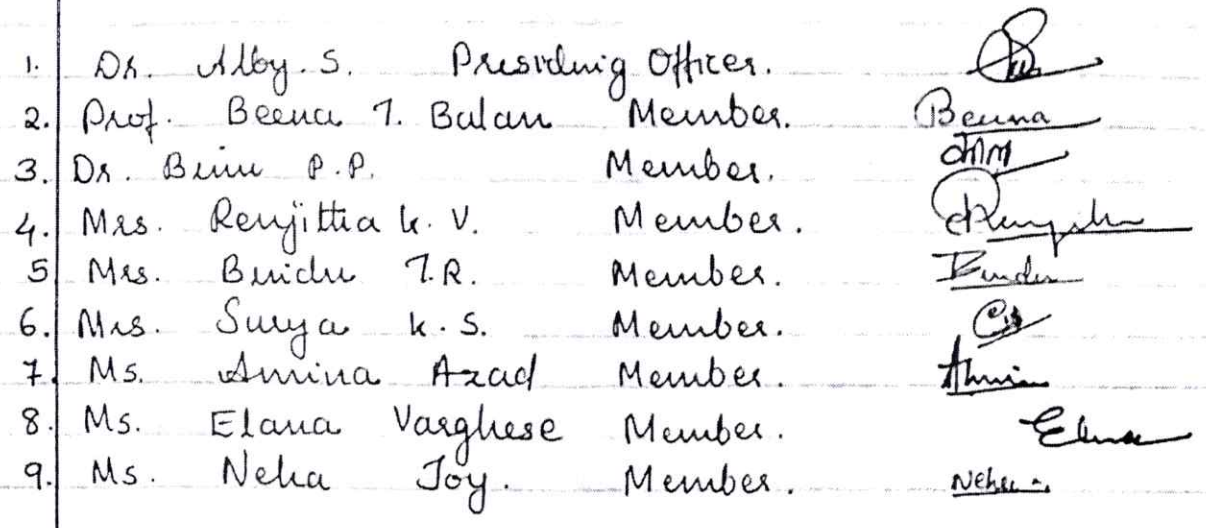 1. Dr. Alby. S. Presiding Officer.
2. Prof. Beena T. Balan Member. Beena
3. Dr. Binu P.P. Member.
4. Mrs. Renjitha K. V. Member. Renjitha
5 Mrs. Bindu T.R. Member. Bindu
6. Mrs. Surya K. S. Member.
7. Ms. Amina Azad Member. Amina
8. Ms. Elana Varghese Member. Elana
9. Ms. Neha Joy. Member. Neha